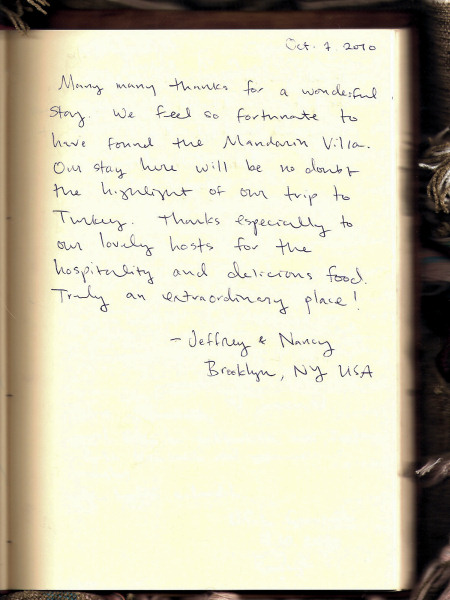 Oct. 7. 2010
Many many thanks for a wonderful
stay. We feel so fortunate to
have found the Mandarin Villa.
Our stay here will be no doubt
the highlight of our trip to
Turkey. Thanks especially to
our lovely hosts for the
hospitality and delicious food.
Truly an extraordinary place!
- Jeffrey & Nancy
Brooklyn, NY USA